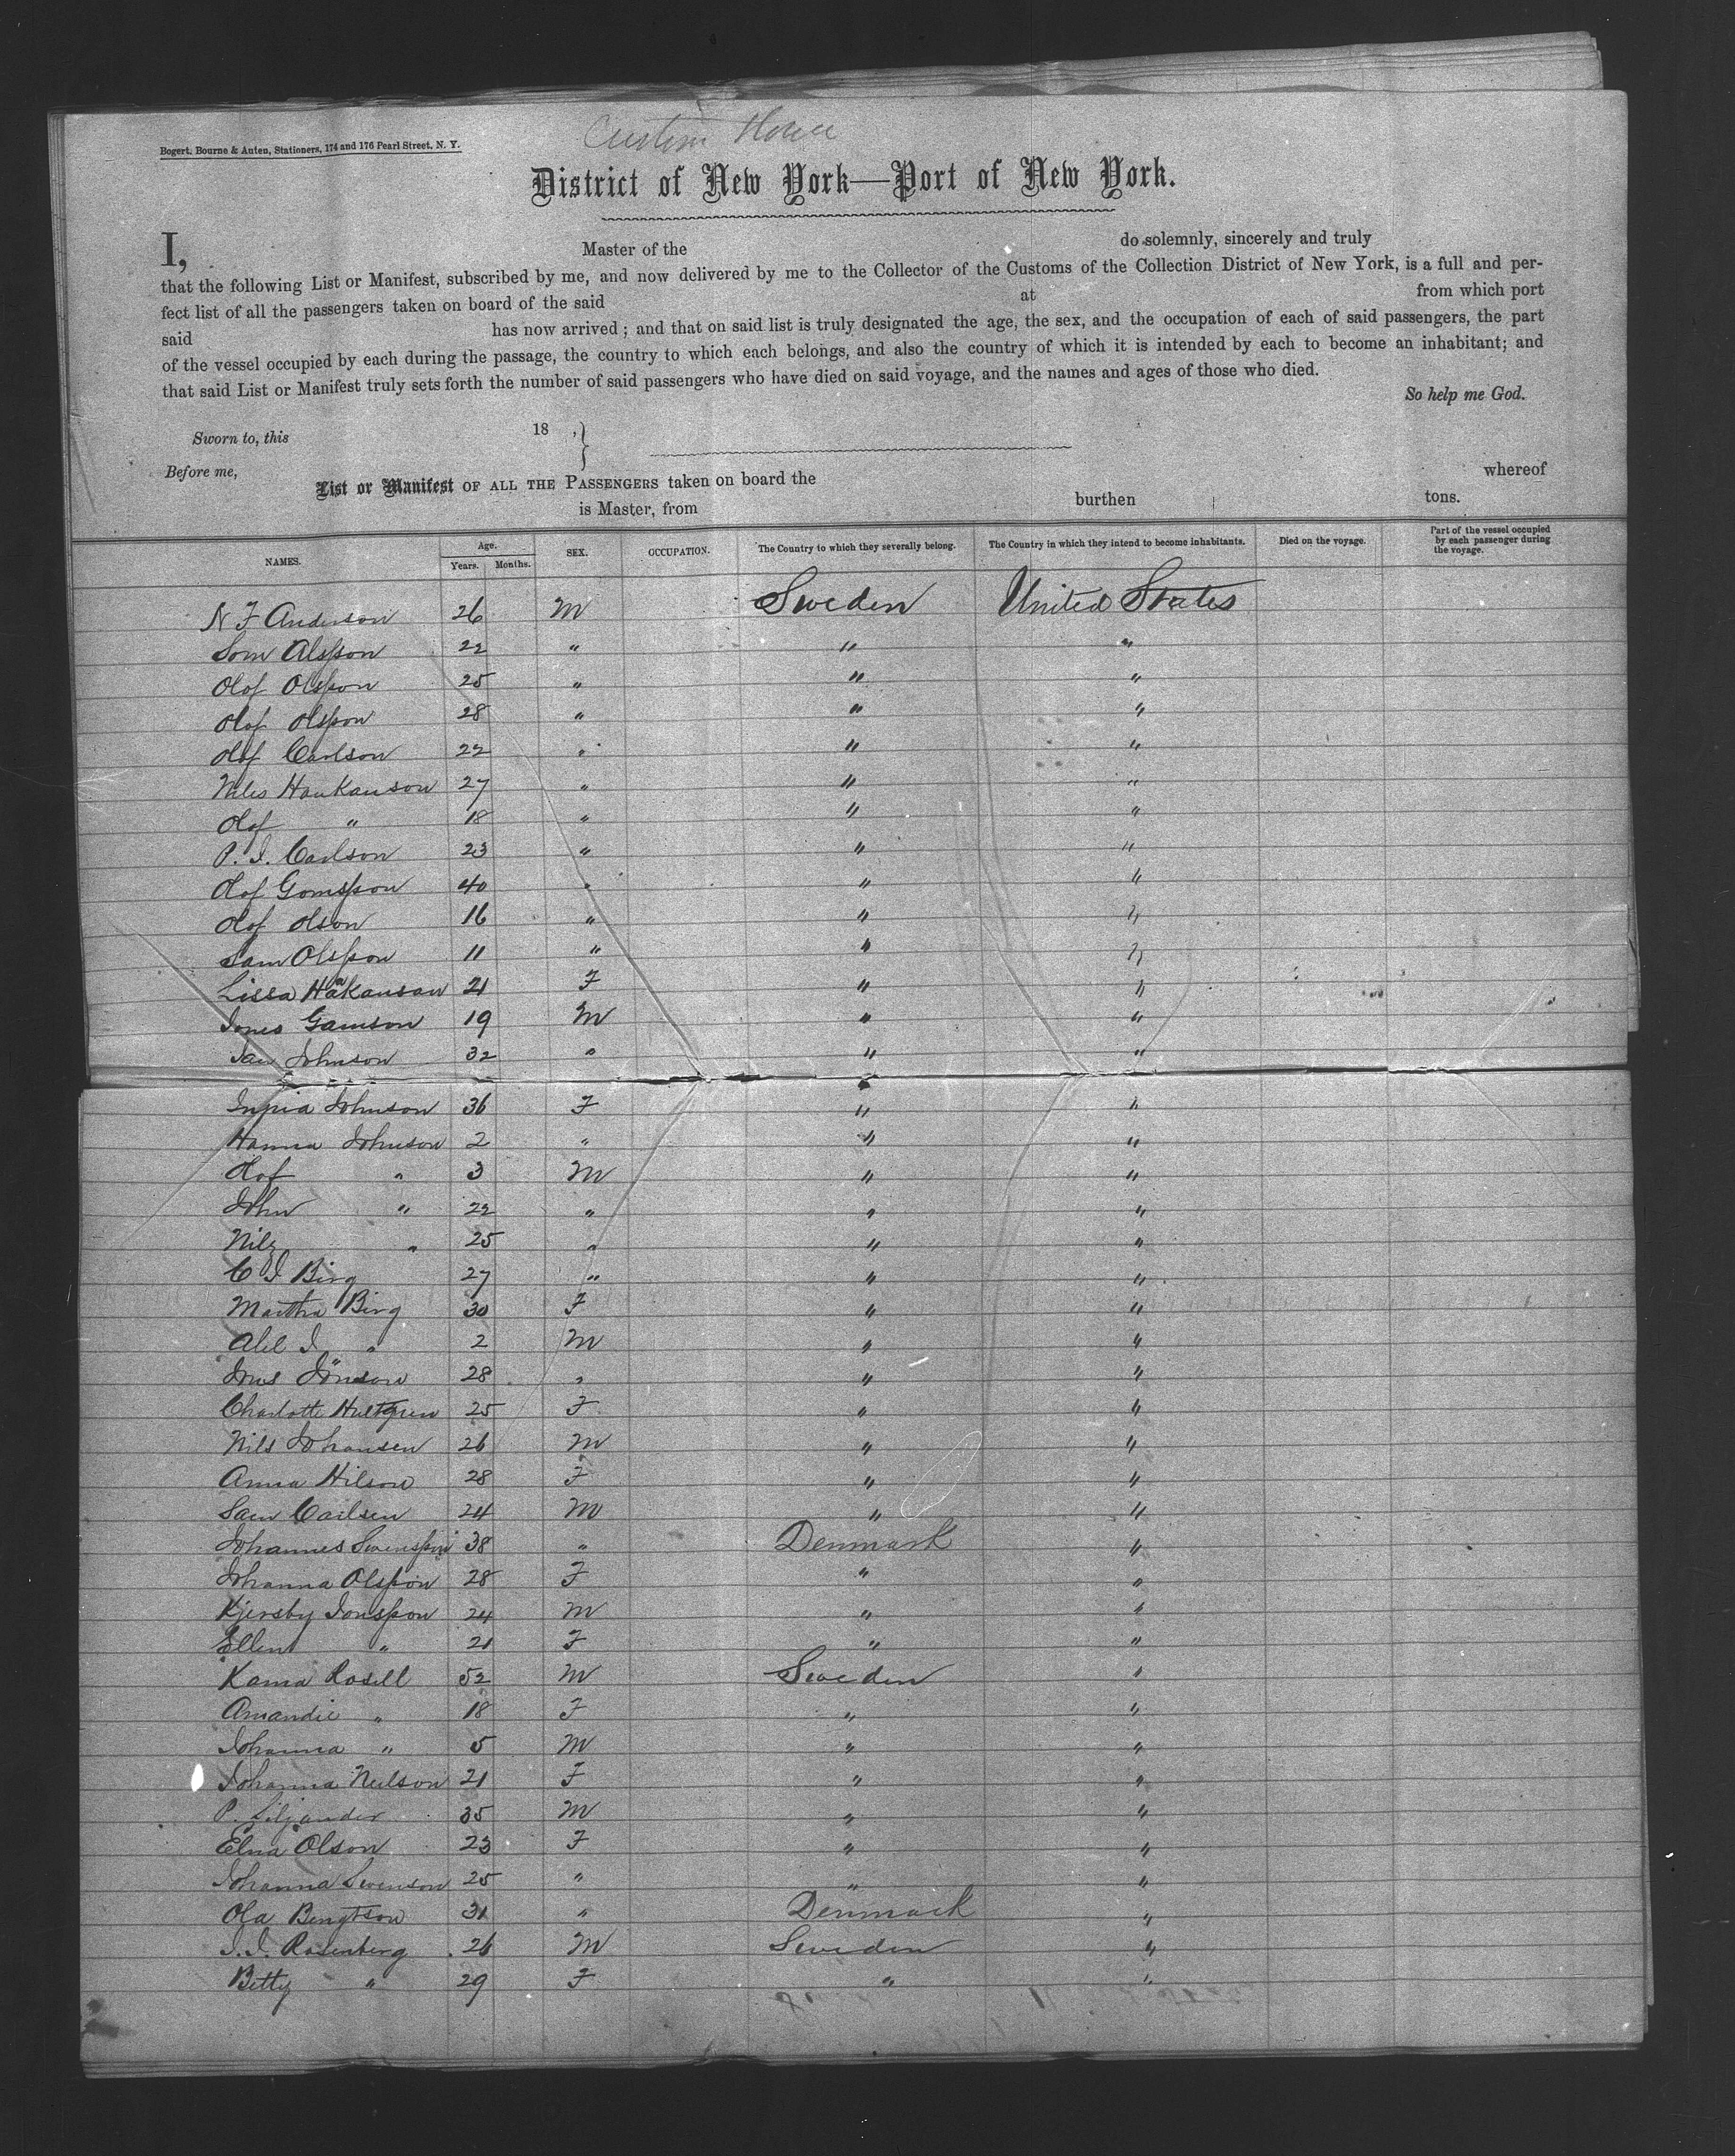 Custom House
Bogert, Bourne & Auten, Stationers, 174 and 176 Pearl Street, N. Y.
District of New York—Port of New York.
I, Master of the do solemnly, sincerely and truly
that the following List or Manifest, subscribed by me, and now delivered by me to the Collector of the Customs of the Collection District of New York, is a full and per-
fect list of all the passengers taken on board of the said at from which port
said has now arrived; and that on said list is truly designated the age, the sex, and the occupation of each of said passengers, the part
of the vessel occupied by each during the passage, the country to which each belongs, and also the country of which it is intended by each to become an inhabitant; and
that said List or Manifest truly sets forth the number of said passengers who have died on said voyage, and the names and ages of those who died.
So help me God.
Sworn to, this 18 ,}
Before me,
List or Manifest OF ALL THE PASSENGERS taken on board the whereof
is Master, from burthen tons.
NAMES. Age. Years. Months. SEX. OCCUPATION. The Country to which they severally belong. The Country in which they intend to become inhabitants. Died on the voyage. Part of the vessel occupied by each passenger during the voyage.
N F Anderson 26 M Sweden United States
Som Alsson 22 " " "
Olof Olsson 25 " " "
Olof Olsson 28 " " "
Olof Carlson 22 " " "
Niles Haukanson 27 " " "
Olof " 18 " " "
P. I. Carlson 23 " " "
Olof Gomsson 40 " " "
Olof Olson 16 " " "
Sam Olsson 11 " " "
Lissa Håkanson 21 F " "
Jones Gamson 19 M " "
Jan Johnson 32 " " "
Johnson 36 F " "
Hanna Johnson 2 " " "
Olof " 3 M " "
John " 22 " " "
Nils " 25 " " "
C I Birg 27 " " "
Martha Birg 30 F " "
Abel I " 2 M " "
Jöns Jönson 28 " " "
Charlotte Hultgren 25 F " "
Nils Johansen 26 M " "
Anna Hilson 28 F " "
Sam Carlsen 24 M " "
Johannes Svensson 38 " Denmark "
Johanna Olsson 28 F " "
Kjersby Jonsson 24 M " "
Ellen " 21 F " "
Kama Rosell 52 M Sweden "
Amandie " 18 F " "
Johanna " 5 M " "
Johanna Neilson 21 F " "
P. Liljander 35 M " "
Elna Olson 23 F " "
Johanna Swenson 25 " " "
Ola Bengtson 31 " Denmark "
I. I. Rosenberg 26 M Sweden "
Betty " 29 F " "